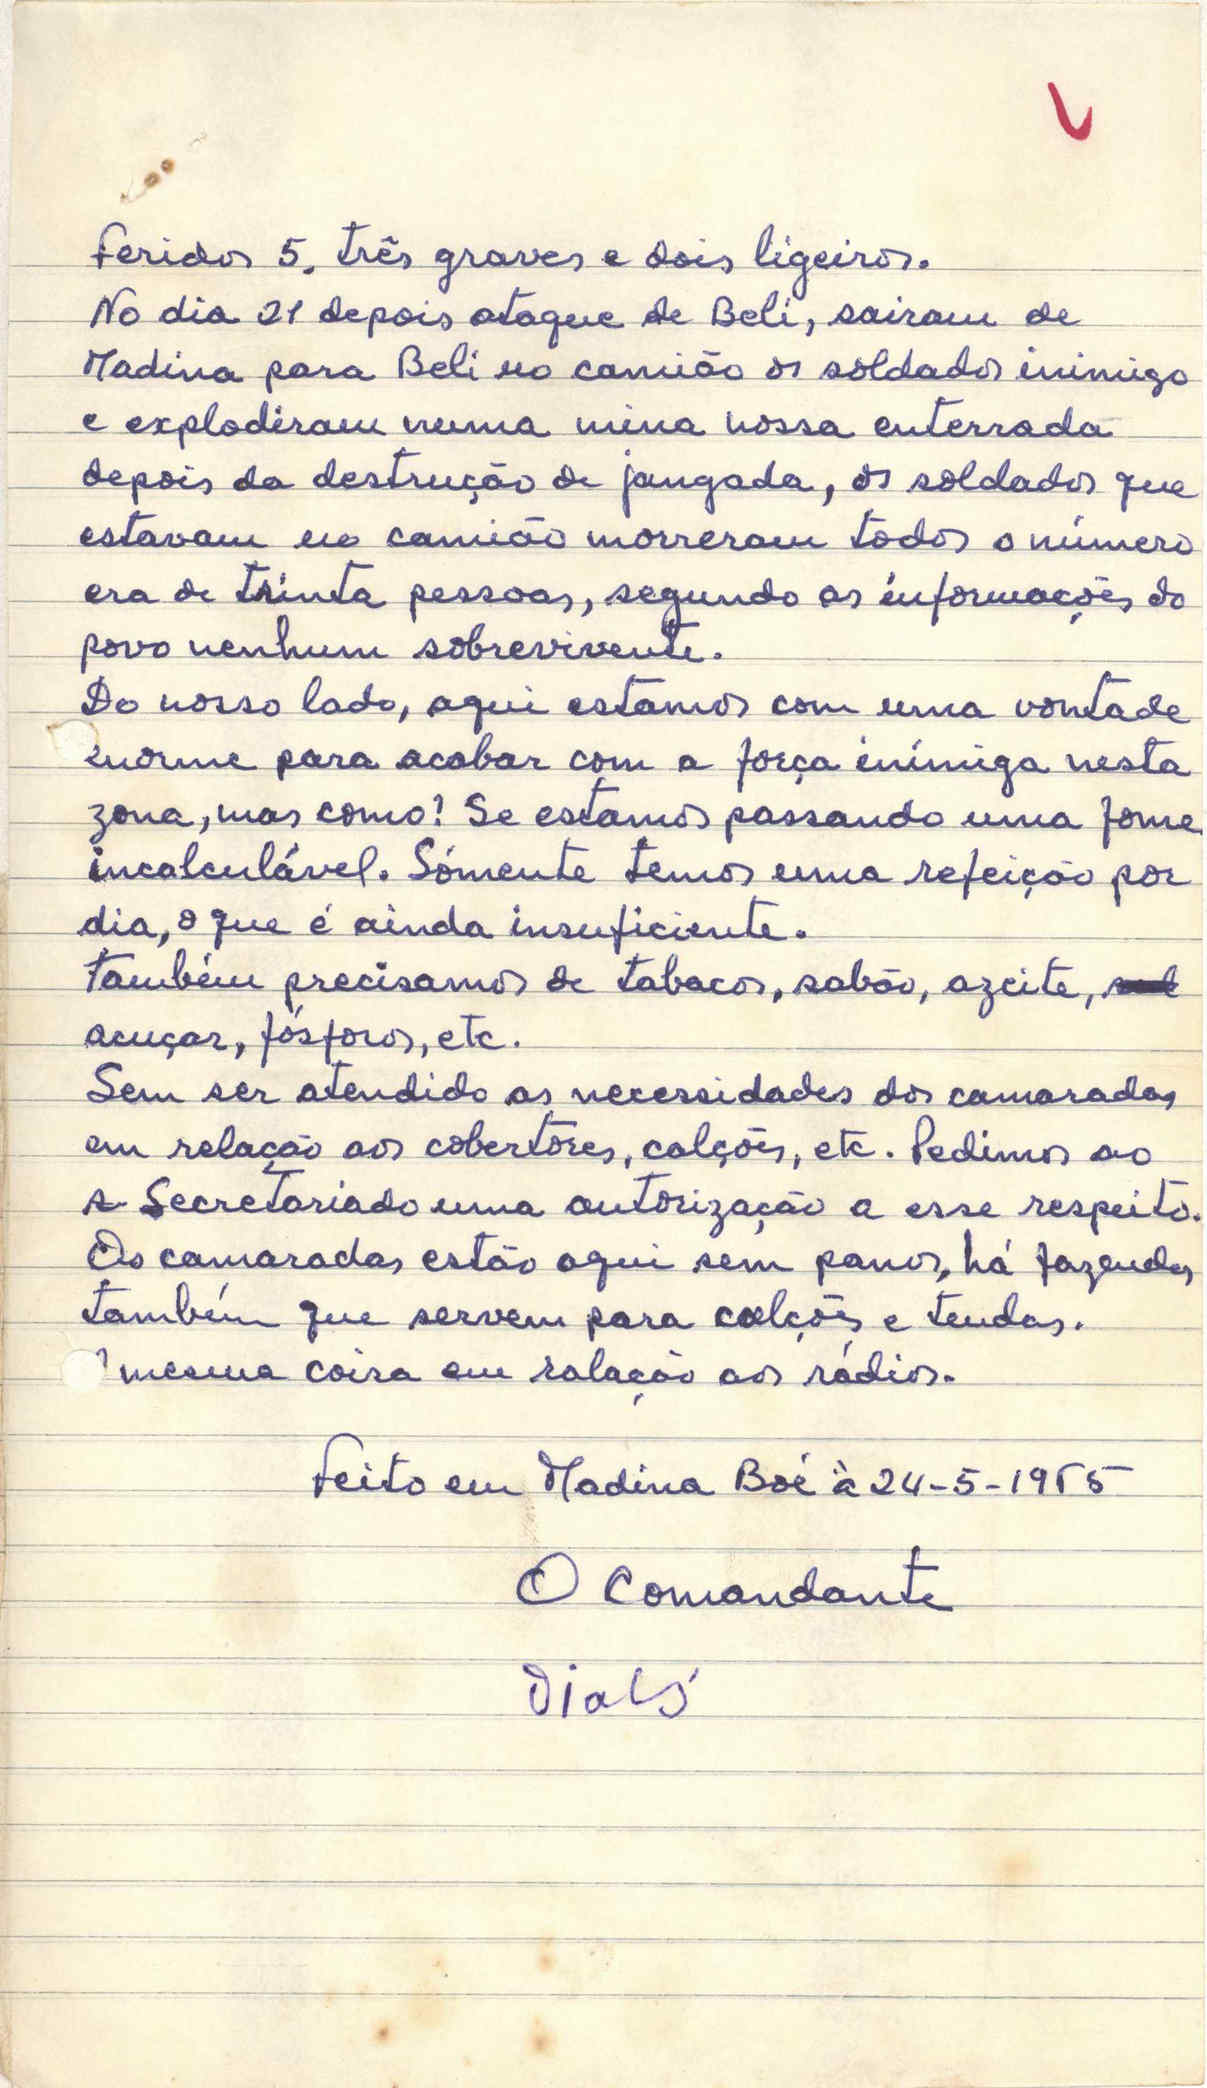 Feridos 5, três graves e dois ligeiros.
No dia 21 depois ataque de Beli, sairam de
Madina para Beli no camião os soldados inimigo
e explodiram numa mina nossa enterrada
depois da destrução de jangada, os soldados que
estavam no camião morreram todos o número
era de trinta pessoas, segundo as informações do
povo nenhum sobrevivente.
Do nosso lado, aqui estamos com uma vontade
enorme para acabar com a força inimiga nesta
zona, mas como! Se estamos passando uma fome
incalculável. Sómente temos uma refeição por
dia, o que é ainda insuficiente.
Também precisamos de tabacos, sabão, azeite,
acuçar, fósforos, etc.
Sem ser atendido as necessidades dos camaradas
em relação aos cobertores, calções, etc. Pedimos ao
s. Secretariado uma autorização a esse respeito.
Os camaradas estão aqui sem panos, há fazendas
também que servem para calções e tendas.
mesma coisa em ralação aos rádios.
Feito em Madina Boé à 24-5-1965
O Comandante